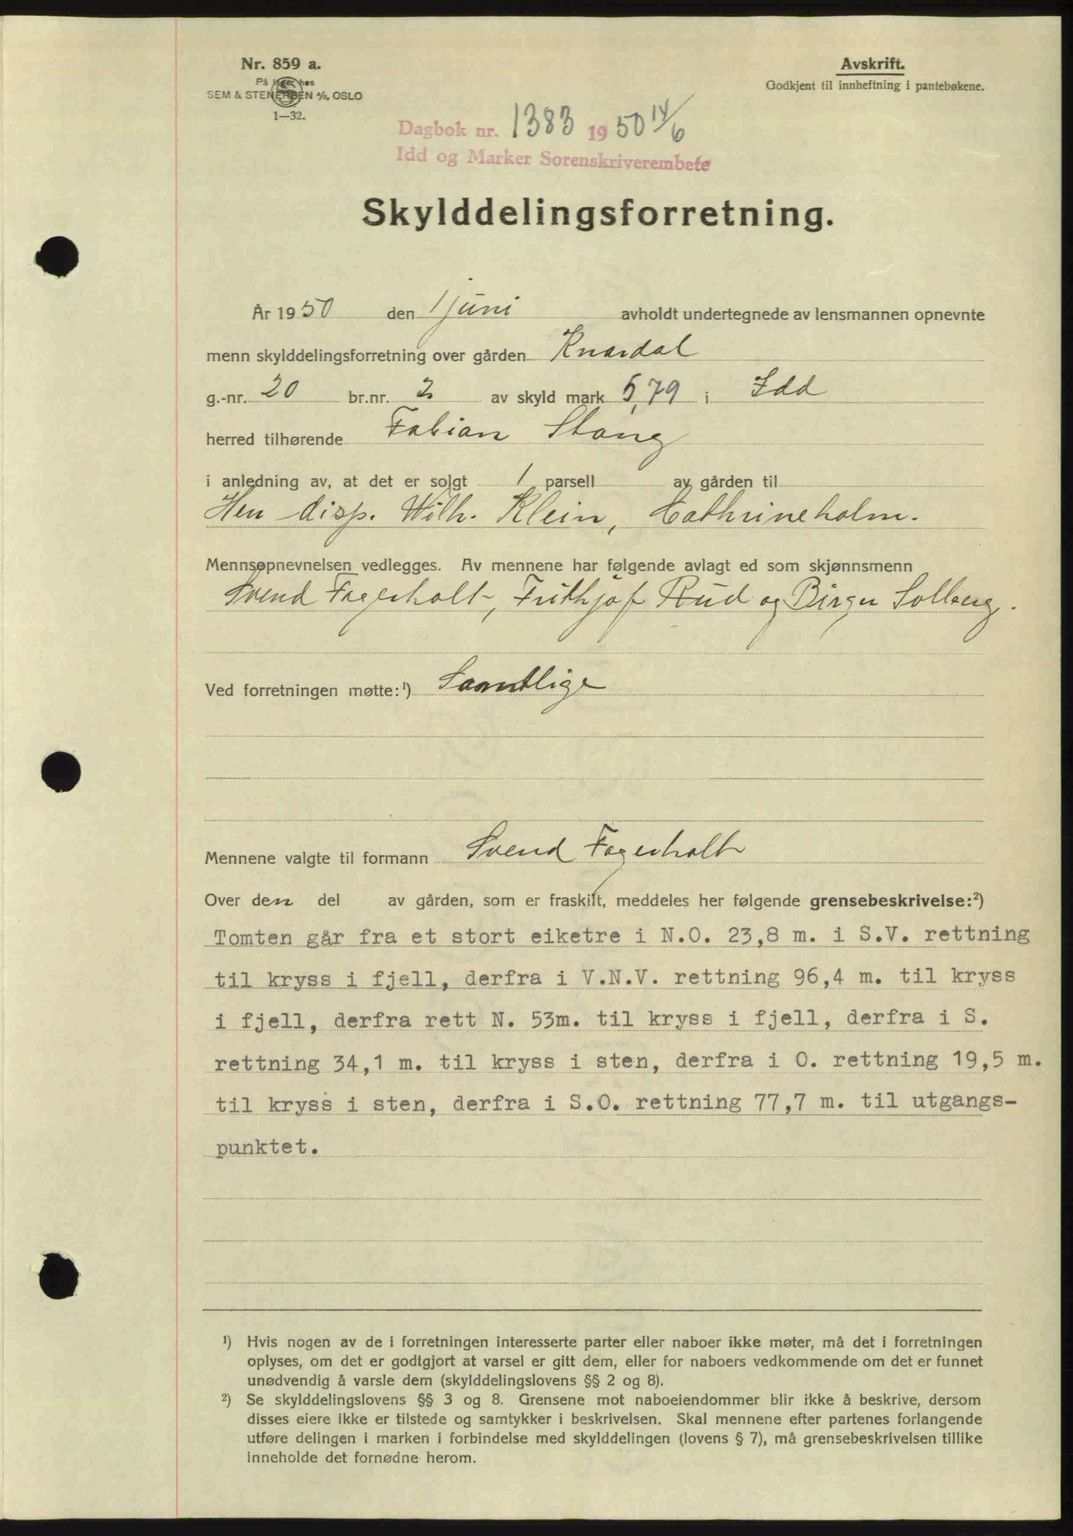 Nr. 859 a.
På lager hos
SEM & STENERSEN A/S, OSLO
1—32.
Avskrift.
Godkjent til innheftning i pantebøkene.
Dagbok nr. 1383 1950 14/6
Idd og Marker Sorenskriverembete
Skylddelingsforretning.
År 1950 den 1 juni avholdt undertegnede av lensmannen opnevnte
menn skylddelingsforretning over gården Knardal
g.-nr. 20 br.nr. 2 av skyld mark 5,79 i Idd
herred tilhørende Fabian Stang
i anledning av, at det er solgt 1 parsell av gården til
Herr disp. Wilh. Klein, Cathrineholm.
Mennsopnevnelsen vedlegges. Av mennene har følgende avlagt ed som skjønnsmenn
Svend Fagerholt, Frithjof Rud og Birger Solberg.
Ved forretningen møtte:¹) Samtlige
Mennene valgte til formann Svend Fagerholt
Over den del av gården, som er fraskilt, meddeles her følgende grensebeskrivelse:²)
Tomten går fra et stort eiketre i N.O. 23,8 m. i S.V. rettning
til kryss i fjell, derfra i V.N.V. rettning 96,4 m. til kryss
i fjell, derfra rett N. 53m. til kryss i fjell, derfra i S.
rettning 34,1 m. til kryss i sten, derfra i O. rettning 19,5 m.
til kryss i sten, derfra i S.O. rettning 77,7 m. til utgangs-
punktet.
¹) Hvis nogen av de i forretningen interesserte parter eller naboer ikke møter, må det i forretningen
oplyses, om det er godtgjort at varsel er gitt dem, eller for naboers vedkommende om det er funnet
unødvendig å varsle dem (skylddelingslovens §§ 2 og 8).
²) Se skylddelingslovens §§ 3 og 8. Grensene mot naboeiendommer blir ikke å beskrive, dersom
disses eiere ikke er tilstede og samtykker i beskrivelsen. Skal mennene efter partenes forlangende
utføre delingen i marken i forbindelse med skylddelingen (lovens § 7), må grensebeskrivelsen tillike
inneholde det fornødne herom.